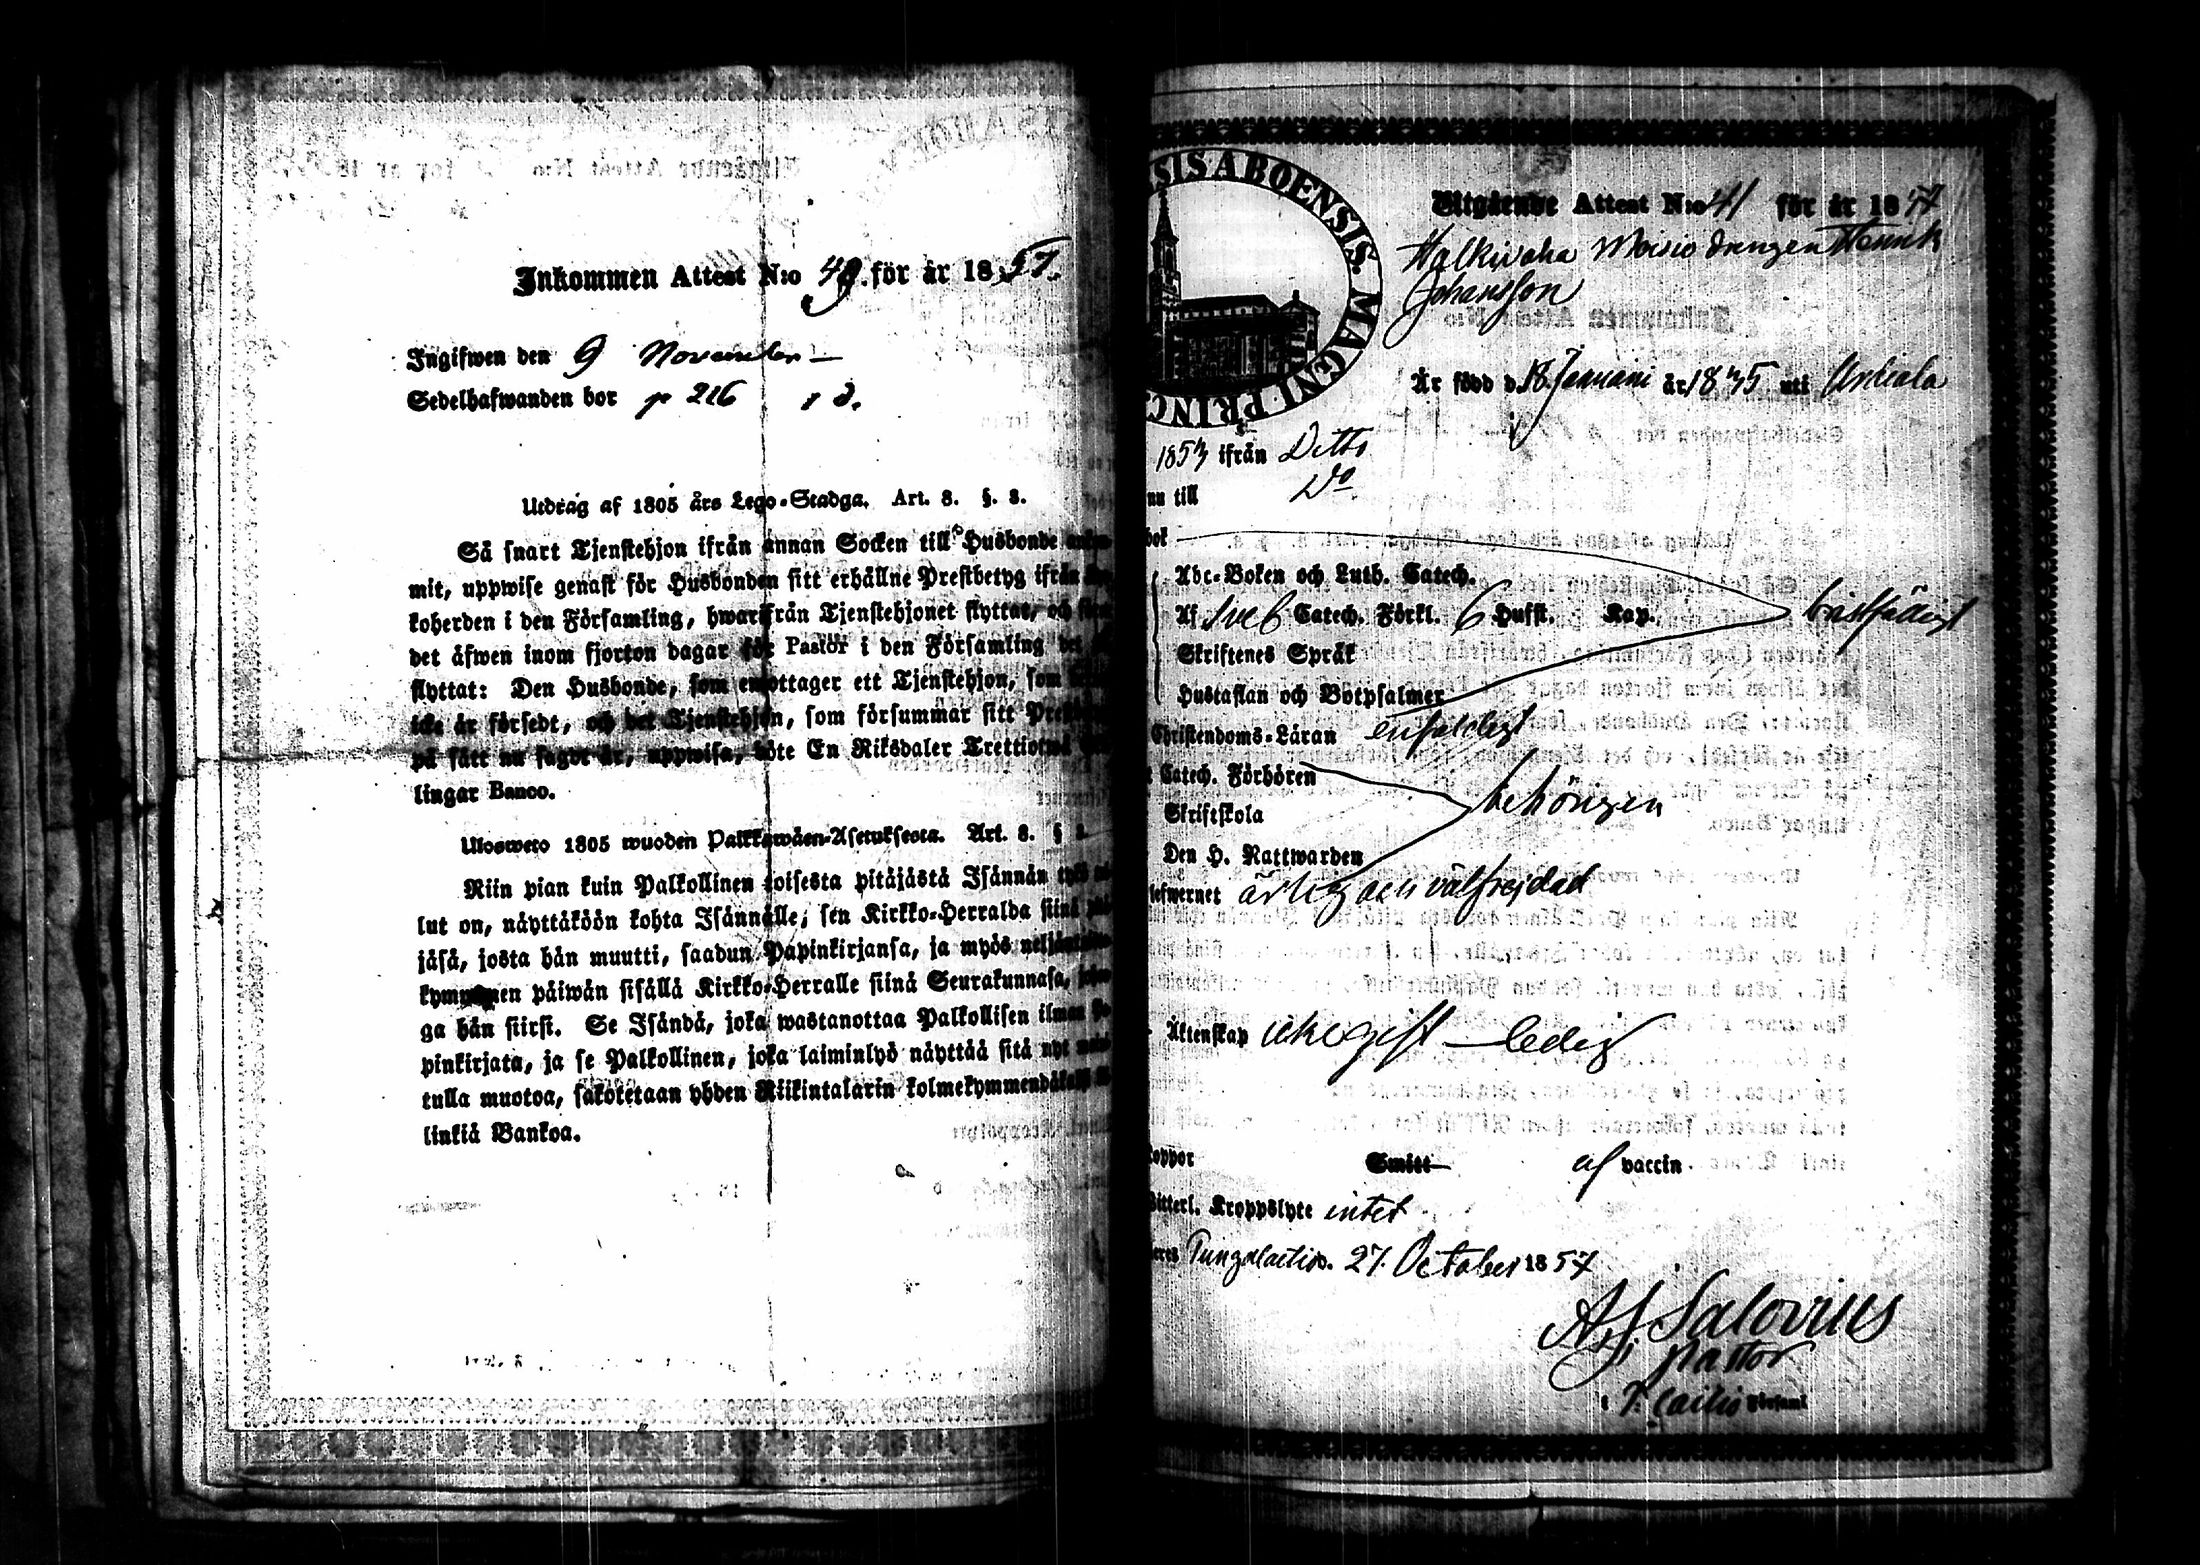 Inkommen Attest N:o 49. för år 1857.
Ingifwen den 9 November
Sedelhafwanden bor p 216
Utdrag af 1805 års Lego-Stadga. Art. 8. §. 8.
Så snart Tjenstehjon ifrån annan Socken till Husbonde
mit, uppwise genast för Husbonden sitt erhållne Prestbetyg ifrån
koherden i den Församling, hwarifrån Tjenstehjonet flyttat, och
det äfwen inom fjorton dagar för Pastor i den Församling det
flyttat: Den Husbonde, som emottager ett Tjenstehjon, som
icke är försedt, och det Tjenstehjon, som försummar sitt
på sätt nu sagdt är, uppwisa, böte En Riksdaler Trettiotwå
lingar Banco.
Ulosweto 1805 wuoden Palkkawäen-Asetuksesta. Art. 8. §
Niin pian kuin Palkollinen toisesta pitäjästä Isännän
lut on, näyttäköön kohta Isännälle, sen Kirkko-Herralda siinä
jäsä, josta hän muutti, saadun Papinkirjansa, ja myös
kymmenen päiwän sisällä Kirkko-Herralle siinä Seurakunnasa,
ga hän siirsi. Se Isändä, joka wastanottaa Palkollisen ilman
pinkirjata, ja se Palkollinen, joka laiminlyö näyttää sitä nyt
tulla muotoa, sakotetaan yhden Riikintalarin kolmekymmendäkaksi
linkiä Bankoa.
SIS ABOENSIS. MAGNI PRINC
Utgående Attest N:o 41 för år 1857
Drengen Henrik
Johansson
Är född d. 18 Januari år 1835 uti Urdiala
1857 ifrån Ditto
nu till Do
bok
Abc-Boken och Luth. Catech.
Af Catech. Förkl. 6 Hufst. Kap.
Skriftenes Språk
Hustaflan och Botpsalmer
Christendoms-Läran enfaldigt
Catech. Förhören
behörigen
Skriftskola
Den H. Nattwarden
lefwernet ärlig och välfrejdad
Äktenskap icke gift – ledig
koppor Smitt af vaccin
Witterl. Kroppslyte intet
27. October 1857
Salovius
pastor
i Församl